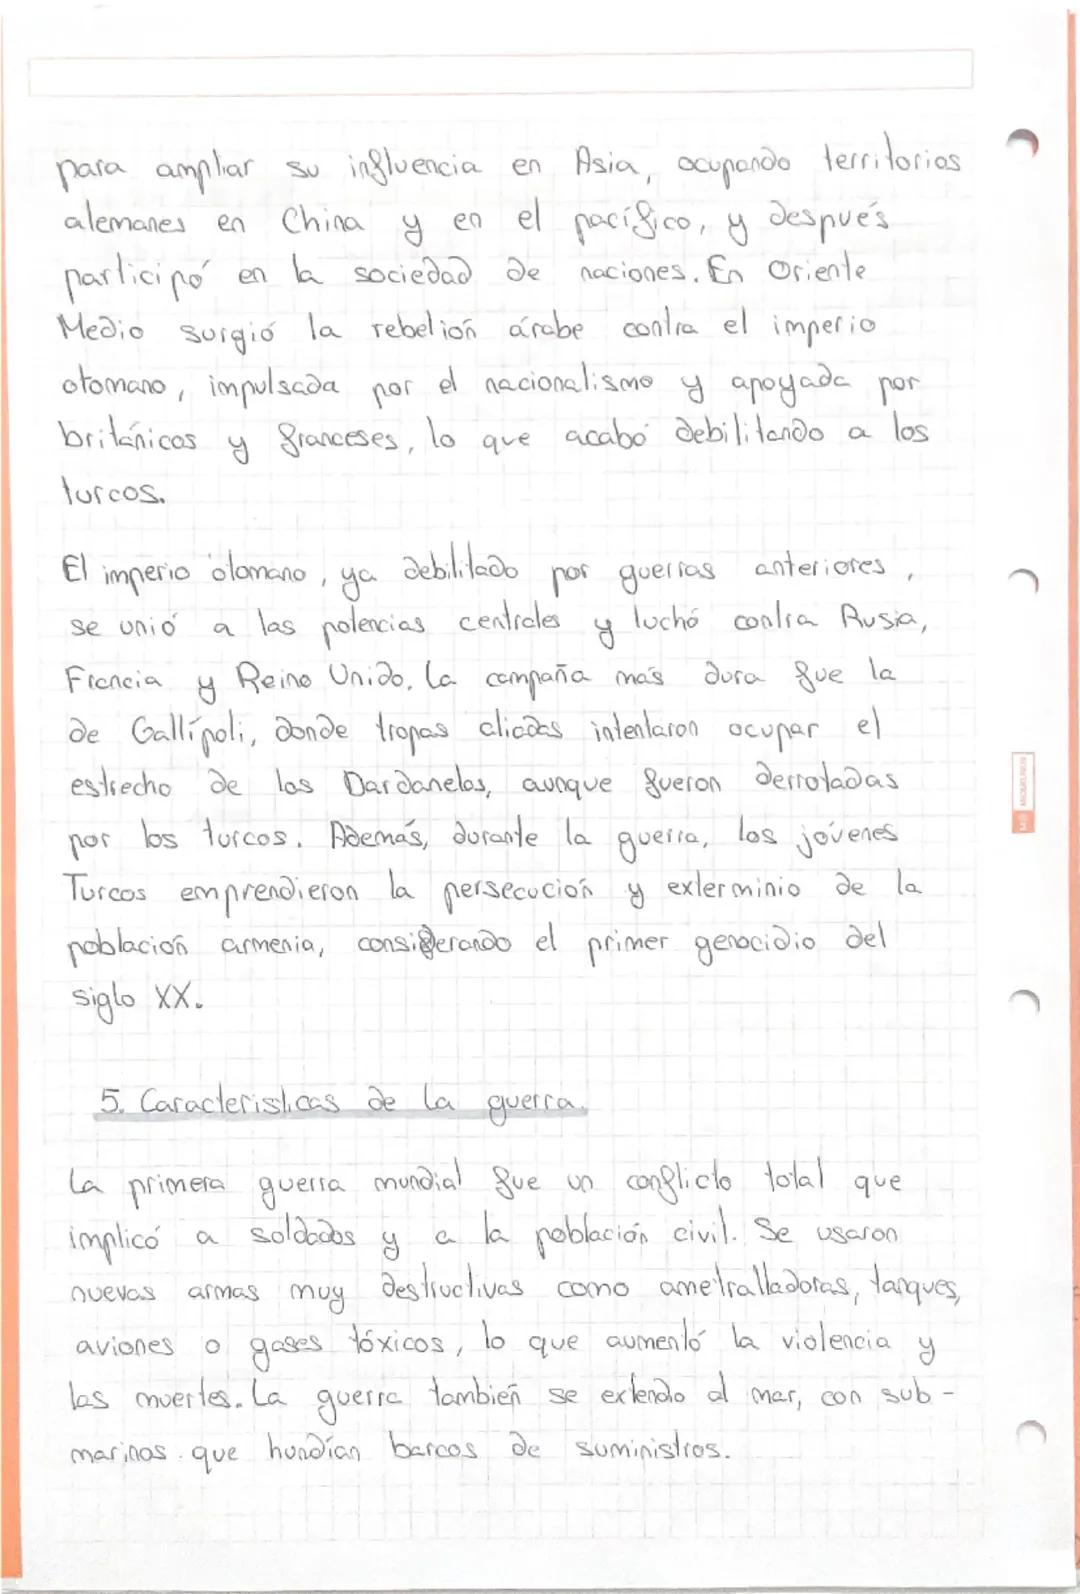 para ampliar su influencia en Asia, ocupando territorios
alemanes en China y en el pacífico, y después
participó en la sociedad de naciones. En Oriente
Medio surgió la rebelión árabe contra el imperio
otomano, impulsada por el nacionalismo y apoyada por
británicos y franceses, lo que acabó debilitando a los
turcos.
El imperio otomano, ya debilitado por guerras anteriores,
se unió a las potencias centrales y luchó contra Rusia,
Francia y Reino Unido. La campaña más dura fue la
de Gallípoli, donde tropas aliadas intentaron ocupar el
estrecho de los Dardanelos, aunque fueron derrotadas
por los turcos. Además, durante la guerra, los jóvenes
Turcos emprendieron la persecución y exterminio de la
población armenia, considerando el primer genocidio del
siglo XX.
5. Caracteristicas de la guerra.
La primera guerra mundial fue un conflicto total que
implicó a soldados y a la población civil. Se usaron
nuevas armas muy destructivas como ametralladoras, tanques,
aviones o gases tóxicos, lo que aumentó la violencia y
las muertes. La guerra también se extendio al mar, con sub-
marinos que hundían barcos de suministros.